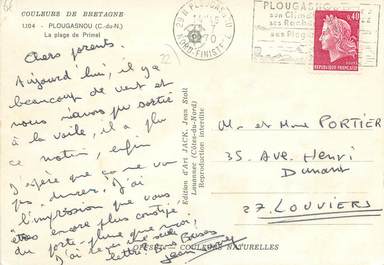 COULEURS DE BRETAGNE
1.104 - PLOUGASNOU (C.-du-N.)
La plage de Primel
Chers parents.
Aujourd'hui, il y a
beaucoup de vent et
nous n'avons pu sortir
à la voile, il a plu
ce matin, enfin
J'espère que ça ne va
pas durer, j'ai
l'impression que vous
êtes encore plus
du porte-plume que moi,
j'ai reçu une seule
lettre. Bons Baisers
Edition d'Art JACK, Jean Stoll
Louannec (Côtes-du-Nord)
Reproduction interdite
29 PLOUGASNOU
70
NORD-FINISTERE
PLOUGASNOU
son Climat
ses Rochers
ses Plages
0,40
REPUBLIQUE FRANÇAISE
M- et Mme PORTIER
35, Ave. Henri
Dunant
27. LOUVIERS
COULEURS NATURELLES